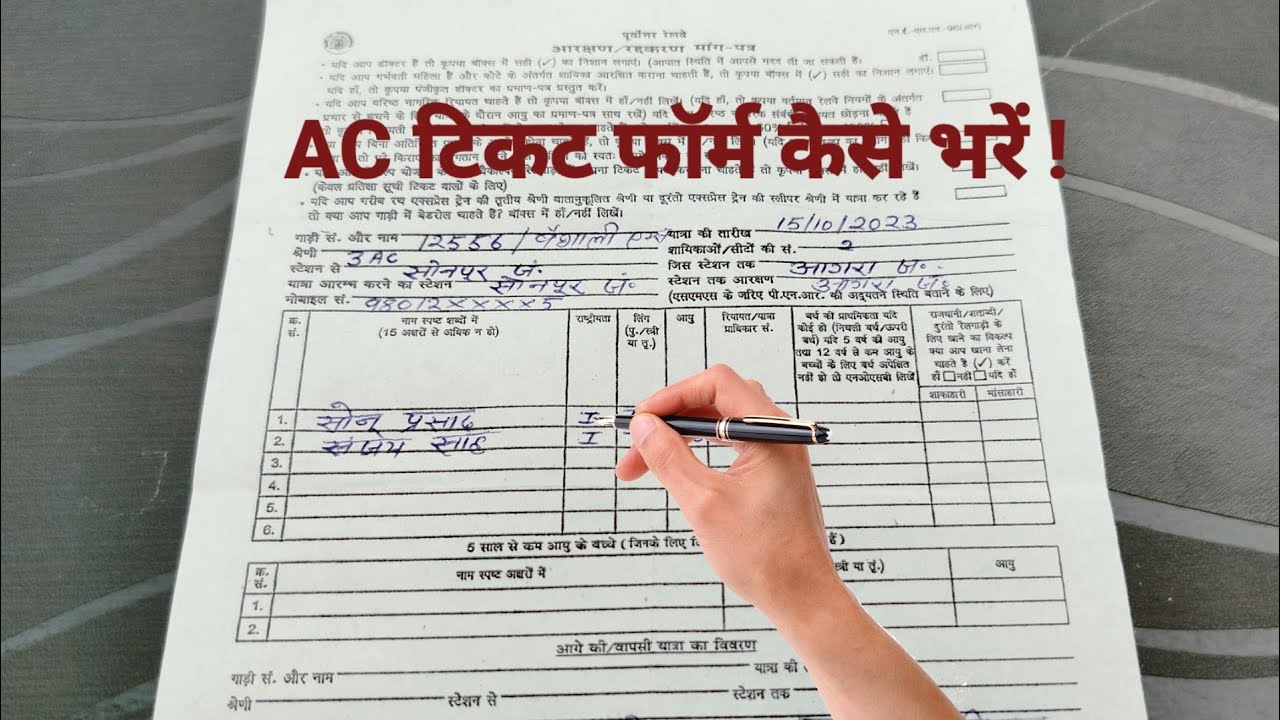 पूर्वोत्तर रेलवे
आरक्षण/रद्दकरण मांग-पत्र
• यदि आप डॉक्टर हैं तो कृपया बॉक्स में सही (✓) का निशान लगाएं। (आपात स्थिति में आपसे मदद ली जा सकती है। डॉ.
• यदि आप गर्भवती महिला हैं और कोटे के अंतर्गत शायिका आरक्षित कराना चाहती हैं, तो कृपया बॉक्स में (✓) सही का निशान लगाएं।
यदि हाँ, तो कृपया पंजीकृत डॉक्टर का प्रमाण-पत्र प्रस्तुत करें।
• यदि आप वरिष्ठ नागरिक रियायत चाहते हैं तो कृपया बॉक्स में हाँ/नहीं लिखें। (यदि हाँ, तो कृपया वर्तमान रेलवे नियमों के अंतर्गत
प्रभार से बचने के लिए यात्रा के दौरान आयु का प्रमाण-पत्र साथ रखें) यदि
AC टिकट फॉर्म कैसे भरें !
(केवल प्रतिक्षा सूची टिकट वालों के लिए)
• यदि आप गरीब रथ एक्सप्रेस ट्रेन की तृतीय श्रेणी वातानुकूलित श्रेणी या दुरंतो एक्सप्रेस ट्रेन की स्लीपर श्रेणी में यात्रा कर रहे हैं
तो क्या आप गाड़ी में बेडरोल चाहते हैं? बॉक्स में हाँ/नहीं लिखें।
गाड़ी सं. और नाम 12556/ वैशाली एक्स यात्रा की तारीख 15/10/2023
श्रेणी 3AC शायिकाओं/सीटों की सं. 2
स्टेशन से सोनपुर जं. जिस स्टेशन तक आगरा जं.
यात्रा आरम्भ करने का स्टेशन सोनपुर जं. स्टेशन तक आरक्षण आगरा जं.
मोबाइल सं. 98012XXXX5 (एसएमएस के जरिए पी.एन.आर. की अद्यतन स्थिति बताने के लिए)
क्र. सं. नाम स्पष्ट शब्दों में (15 अक्षरों से अधिक न हो) राष्ट्रीयता लिंग (पु./स्त्री या तृ.) आयु रियायत/यात्रा प्राधिकार सं. बर्थ की प्राथमिकता यदि कोई हो (निचली बर्थ/ऊपरी बर्थ) यदि 5 वर्ष की आयु तथा 12 वर्ष से कम आयु के बच्चों के लिए बर्थ अपेक्षित नहीं हो तो एनओएसबी लिखें राजधानी/शताब्दी/दुरंतो रेलगाड़ी के लिए खाने का विकल्प क्या आप खाना लेना चाहते हैं (✓) करें हाँ नहीं यदि हाँ
शाकाहारी मांसाहारी
1. सोनू प्रसाद I
2. संजय साह I
3.
4.
5.
6.
5 साल से कम आयु के बच्चे (जिनके लिए
क्र. सं. नाम स्पष्ट अक्षरों में या तृ.) आयु
1.
2.
आगे की/वापसी यात्रा का विवरण
गाड़ी सं. और नाम यात्रा की
श्रेणी स्टेशन से स्टेशन तक